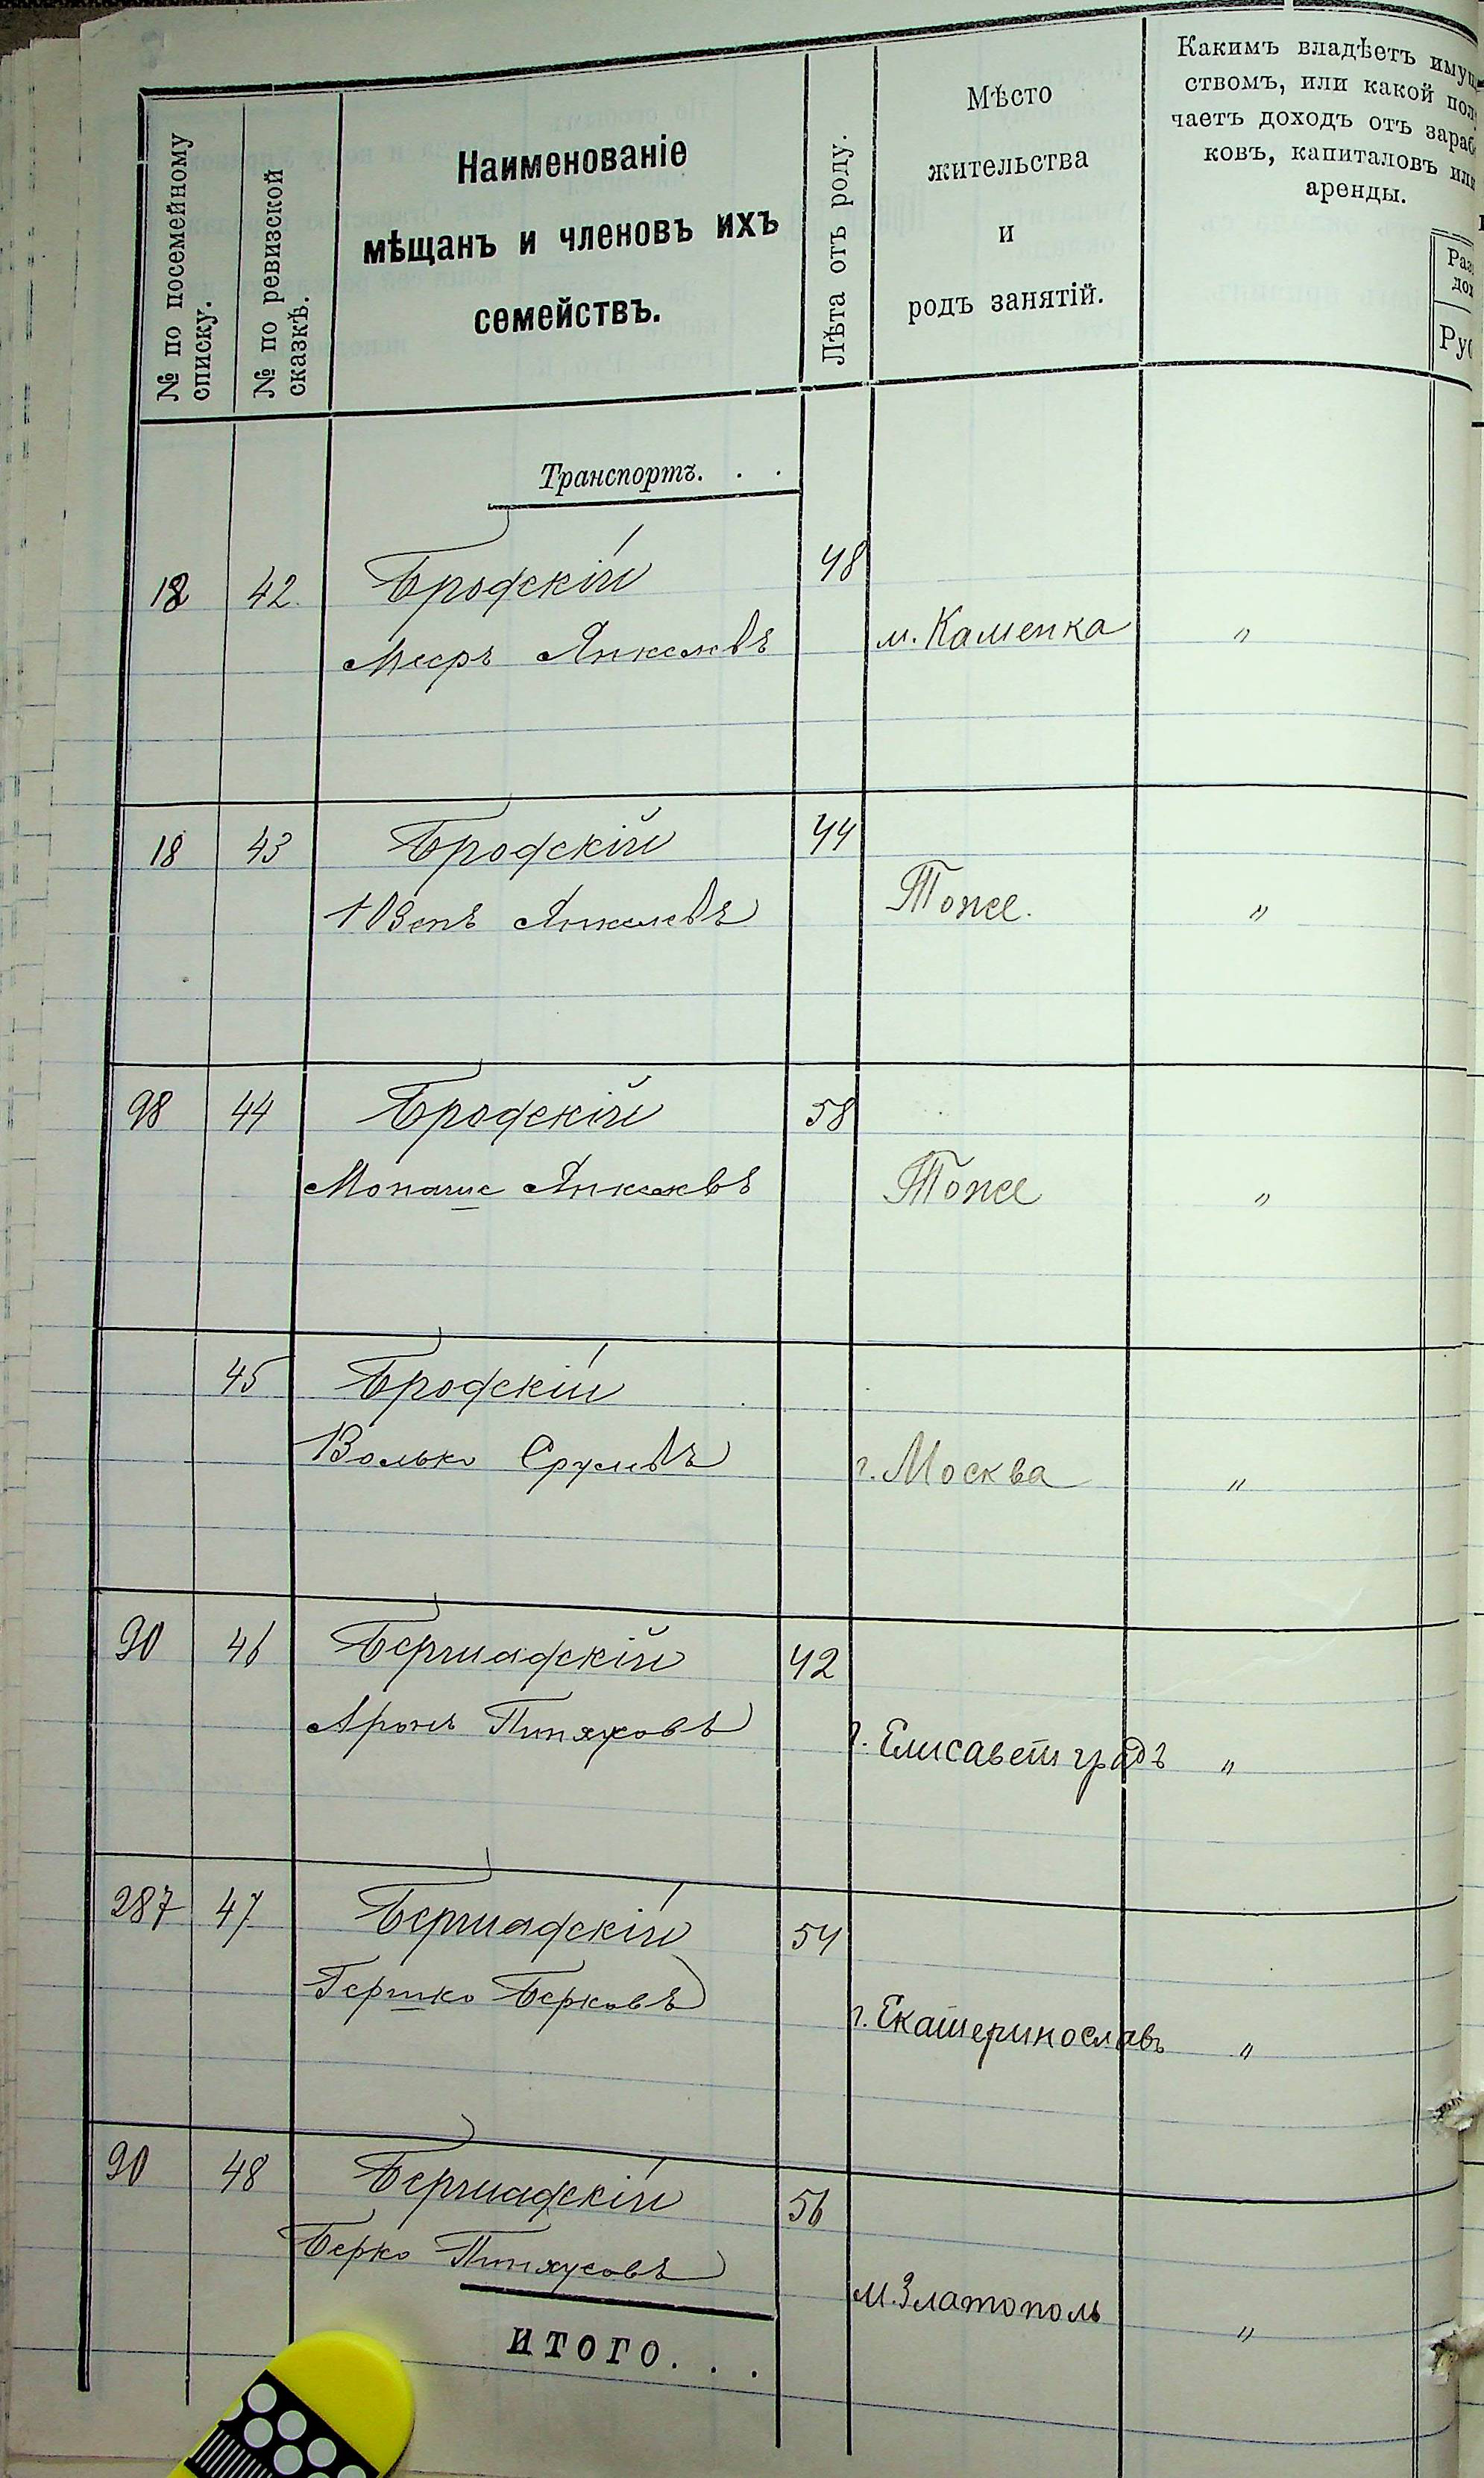 № по посемейному
списку.
№ по ревизской
сказкѣ.
Наименованіе
мѣщанъ и членовъ ихъ
семействъ.
Лѣта отъ роду.
Мѣсто
жительства
и
родъ занятій.
Какимъ владѣетъ имущ
ствомъ, или какой пол
чаетъ доходъ отъ зараб
ковъ, капиталовъ или
аренды.
Раз
дох
Руб
Транспортъ. . .
18 42 Бродскій 48
Мееръ Янкелевъ м. Каменка "
18 43 Бродскій 44
Юзепъ Янкелевъ Тоже. "
98 44 Бродскій 58
Янкелевъ Тоже "
45 Бродскій
Волько Срулевъ г. Москва "
90 46 Бершадскій 42
Аронъ Пинхусовъ г. Елисаветградъ "
287 47 Бершадскій 54
Гершко Берковъ г. Екатеринославъ "
90 48 Бершадскій 56
Берко Пинхусовъ м. Златополь "
ИТОГО. . .